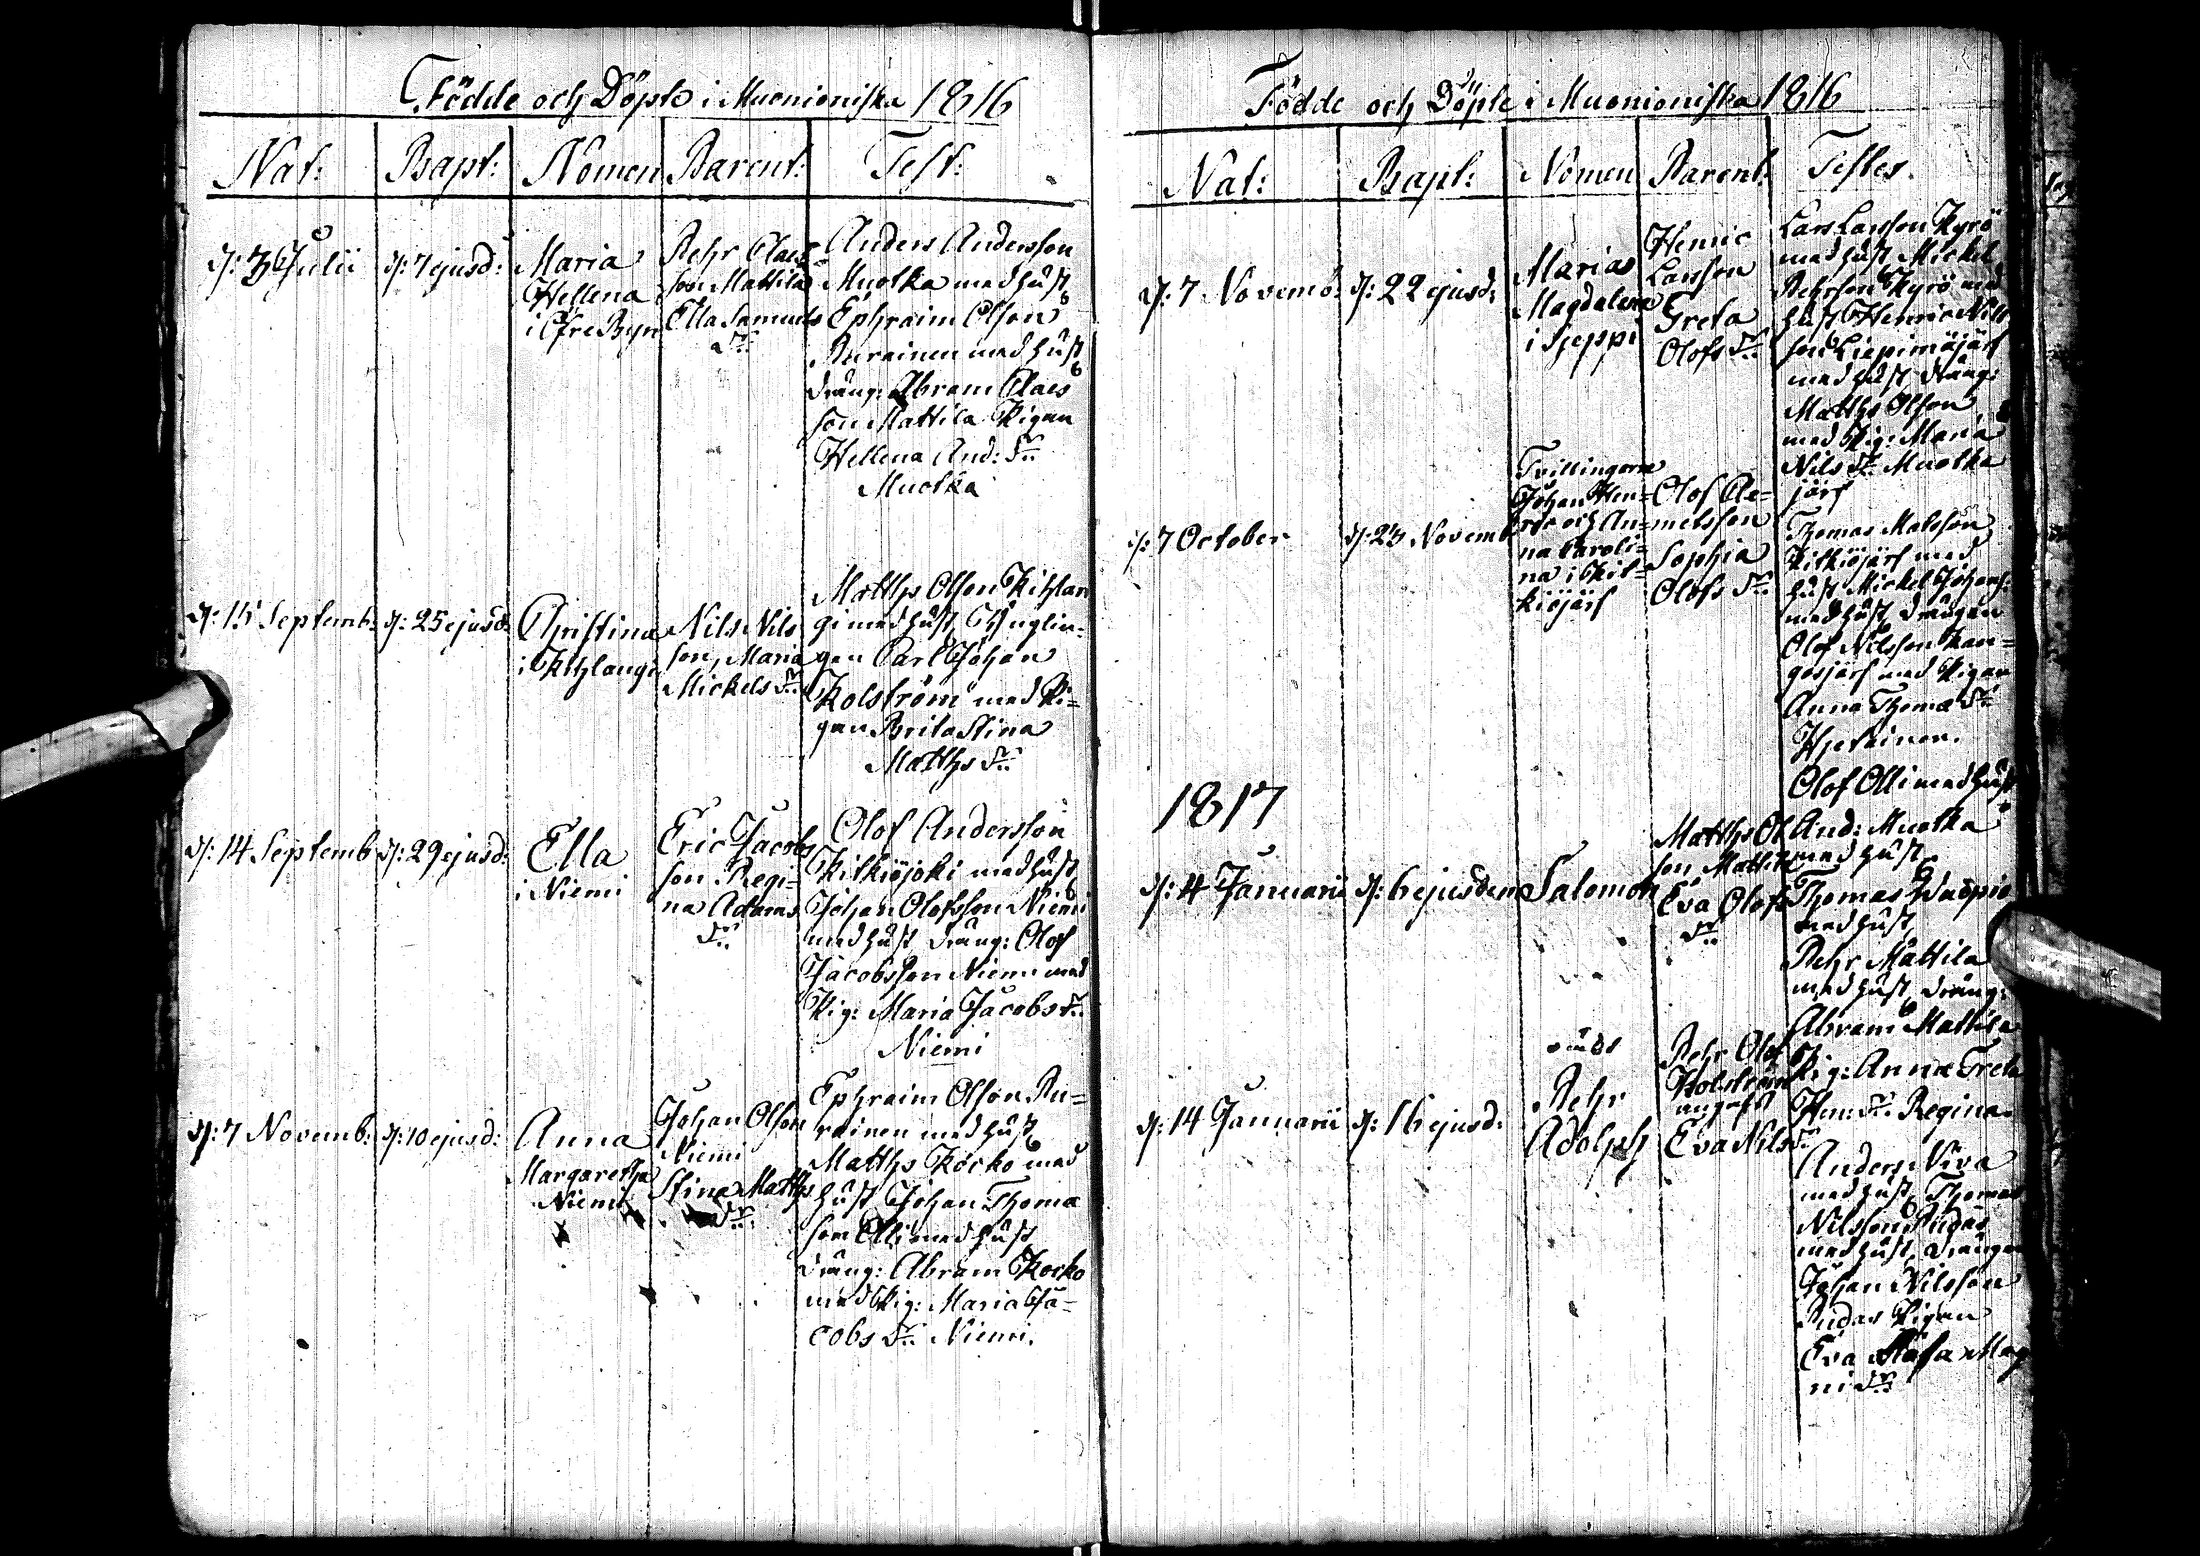 Födde och Döpte i Muonioniska 1816
Nat: Bapt: Nomen Parent: Test:
d: 3 Julii
d: 7 ejusd:
Maria
Hellena
i Öfre Byn
Pehr Claes
son Mattila
Ella Samuels
dr:
Anders Andersson
Muotka med hust
Ephraim Olson
med hust
dräng: Abram Claes
son Mattila Pigan
Hellena And: dr:
Muotka
d: 15 Septemb:
d: 25 ejusd:
Christina
i Kihlangi
Nils Nils
son, Maria
Mickels dr:
Matths Olson Kihlan
gi med hust Ynglin-
gen Carl Johan
Kolström med Pi-
gan Brita Stina
Matths dr:
d: 14 Septemb
d: 29 ejusd:
Ella
i Niemi
Eric Jacobs
son Regi-
na Adams
dr:
Olof Andersson
Kitkiöjoki med hust
Johan Olofsson Niemi
med hust dräng: Olof
Jacobsson Niemi med
Pig: Maria Jacobs dr:
Niemi
d: 7 Novemb:
d: 10 ejusd:
Anna
Margaretha
Niemi
Johan Olson
Niemi
Stina Matths
dr:
Ephraim Olson Ru-
rainen med hust
Matths Kocko med
hust Johan Thoma
son Olli med hust
dräng: Abram Kocko
med Pig: Maria Ja-
cobs dr: Niemi.
Födde och Döpte i Muonioniska 1816
Nat: Bapt: Nomen Parent: Testes.
d: 7 Novemb:
d: 22 ejusd:
Maria
Magdalena
i Jieppi
Henric
Larsson
Greta
Olofs dr:
Lars Larsson Kyrö
med hust Mickel
Pehrson Kyrö med
hust Henric Nils
son Liepimäjärf
med hust dräng:
Matths Olson
med Pig: Maria
Nils dr: Muotka
järf
d: 7 October
d: 23 Novemb
Tvillingarne
Johan Hen-
ric och An-
na Caroli-
na i Kit-
kiöjärf
Olof Cle-
metsson
Sophia
Olofs dr:
Thomas Matsson
Kitkiöjärf med
hust Mickel Johans:
med hust drängen
Olof Nilsson Kan-
gosjärf med Pigan
Anna Thomæ dr:
Hjetainen.
1817
d: 4 Januarii
d: 6 ejusdem
Salomon
Matths Ol
son Mattila
Eva Olofs
dr:
Olof Olli med hust
And: Muotka
med hust
Thomas
med hust,
Pehr Mattila
med hust dräng:
Abram Mattila
Pig: Anna Greta
Hen: dr: Regina
d: 14 Januarii
d: 16 ejusd:
Pehr
Adolph
Pehr Olof
Kolström
Eva Nils dr:
Anders Niva
med hust Thomas
Nilsson Rudas
med hust drängen
Johan Nilsson
Rudas Pigan
Eva Mag
ni dr: